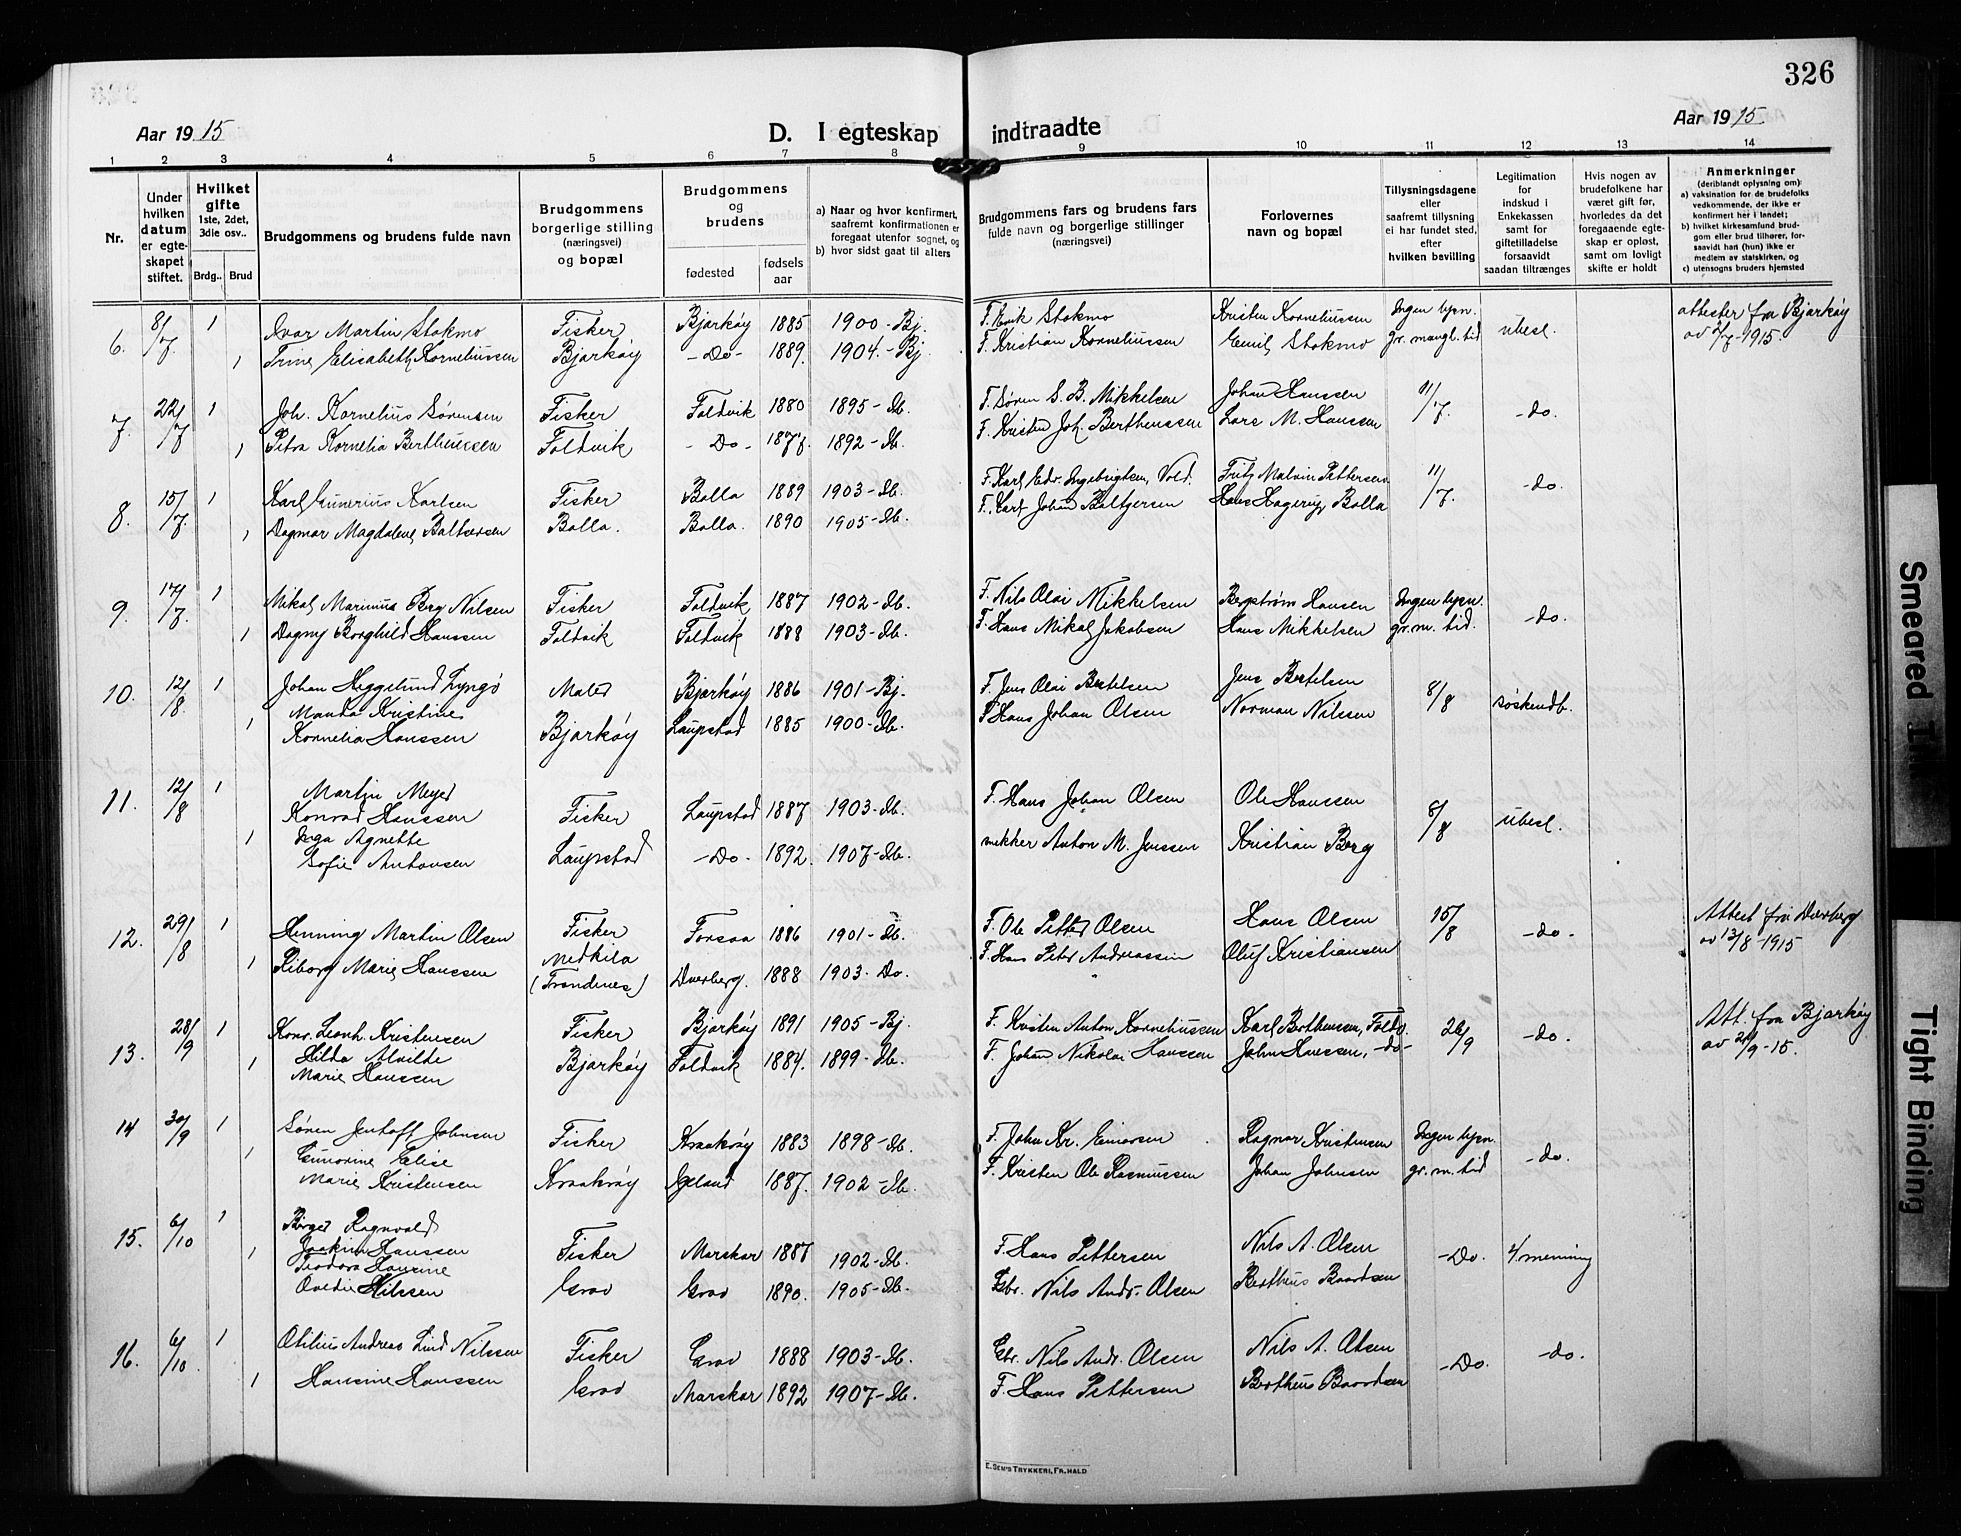 326
Aar 1915
D. I egteskap indtraadte
Aar 1915
1 2 3 4 5 6 7 8 9 10 11 12 13 14
Nr.
Under hvilken datum er egteskapet stiftet.
Hvilket gifte 1ste, 2det, 3die osv..
Brdg.. Brud
Brudgommens og brudens fulde navn
Brudgommens borgerlige stilling (næringsvei) og bopæl
Brudgommens og brudens
fødested
fødsels aar
a) Naar og hvor konfirmert, saafremt konfirmationen er foregaat utenfor sognet, og
b) hvor sidst gaat til alters
Brudgommens fars og brudens fars fulde navn og borgerlige stillinger (næringsvei)
Forlovernes navn og bopæl
Tillysningsdagene eller saafremt tillysning ei har fundet sted, efter hvilken bevilling
Legitimation for indskud i Enkekassen samt for giftetilladelse forsaavidt saadan tiltrænges
Hvis nogen av brudefolkene har været gift før, hvorledes da det foregaaende egteskap er opløst, samt om lovligt skifte er holdt
Anmerkninger (deriblandt oplysning om):
a) vaksination for de brudefolks vedkommende, der ikke er konfirmert her i landet;
b) hvilket kirkesamfund brudgom eller brud tilhører, forsaavidt han (hun) ikke er medlem av statskirken, og
c) utensogns bruders hjemsted
6. 8/7 1 Ivar Martin Stokmo Fisker Bjarkøy 1885 1900 - Bj. F. Erik Stokmo Kristen Korneliussen Ingen lysn. ubesl. attester fra Bjarkøy
1 Trine Elisabeth Korneliussen Bjarkøy - Do - 1889. 1904. - Bj F. Kristian Korneliussen Emil Stokmo gr. mangl. tid av 2/7-1915.
7. 22/7 1 Joh. Kornelius Sørensen Fisker Foldvik 1880 1895 - Ib. F. Søren S. B. Mikkelsen Johan Hanssen 11/7. - do.
1 Petra Kornelia Bertheussen Foldvik - Do - 1877. 1892 - Ib. F. Kristen Joh. Bertheussen Lars M. Hanssen
8. 15/7 1 Karl Gunerius Karlsen Fisker Bolla 1889 1903 - Ib. F. Karl Edv. Ingebrigtsen, Vold. Fritz Malvin Pettersen 11/7. - do.
1 Dagmar Magdalene Baltsersen Bolla. Bolla. 1890 1905 - Ib. F. Karl Johan Baltzersen Hans Hagerup, Bolla
9. 17/7 1 Mikal Marinius Berg Nilsen Fisker Foldvik 1887 1902 - Ib. F. Nils Olai Mikkelsen Bergstrøm Hansen Ingen lysn. - do.
1 Dagny Borghild Hanssen Foldvik Foldvik 1888 1903 - Ib. F. Hans Mikal Jakobsen Hans Mikkelsen gr. m. tid.
10. 12/8 1 Johan Heggelund Lyngø Maler Bjarkøy 1886 1901 - Bj. F. Jens Olai Bertelsen Jens Bertelsen 8/8 søskendb.
1 Manda Kristine
Kornelia Hanssen Bjarkøy Laupstad 1885 1900 - Ib. F. Hans Johan Olsen Norman Nilssen
11. 12/8 1 Martin Meyer
Konrad Hanssen Fisker Laupstad 1887 1903 - Ib. F. Hans Johan Olsen Ole Hanssen 8/8 ubesl.
1 Inga Agnette
Sofie Antonsen Laupstad - Do - 1892. 1907 - Ib. Anton M. Jenssen Kristian Berg
12. 29/8 1 Henning Martin Olsen Fisker Forsaa 1886 1901 - Ib. F. Ole Petter Olsen Hans Olsen 15/8 - do - Attest fra Dverberg
1 Riborg Marie Hanssen Medkila (Trondenes) Dverberg. 1888 1903 - Do. F. Hans Peter Andreassen Oluf Kristiansen av 13/8-1915
13. 28/9 1 Konr. Leonh. Kristensen Fisker Bjarkøy 1891 1905 - Bj. F. Kristen Anton Korneliussen Karl Bertheussen, Foldv. 26/9 - do. Att. fra Bjarkøy
1 Hilda Alvilde
Marie Hanssen Bjarkøy Foldvik 1884. 1899 - Ib. F. Johan Nikolai Hanssen John Hanssen, - do - av 21/9-15.
14 30/9 1 Søren Jentoft Johnsen Fisker Kraakrøy 1883 1898 - Ib. F. John Kr. Einarsen Ragnar Kristensen Ingen lysn. - do.
1 Gunorine Elise
Marie Kristensen Kraakrøy Igeland 1887. 1902 - Ib. F. Kristen Ole Rasmussen Johan Johnsen gr. m. tid
15. 6/10 1 Birger Ragnvald
Joakim Hanssen Fisker Marskar 1887 1902 - Ib. F. Hans Pettersen Nils A. Olsen - Do. 4. menning
1 Teodora Hansine
Ovedie Nilssen Grov Grov 1890. 1905 - Ib. Gbr. Nils Andr. Olsen Bertheus Baardsen
16. 6/10 1 Otilius Andreas Lind Nilssen Fisker Grov 1888 1903 - Ib. Gbr. Nils Andr. Olsen Nils A. Olsen - Do. - do.
1 Hansine Hanssen Grov Marskar 1892 1907 - Ib. F. Hans Pettersen Bertheus Baardsen
E. SEM'S TRYKKERI, FR.HALD
Smeared Ink
Tight Binding